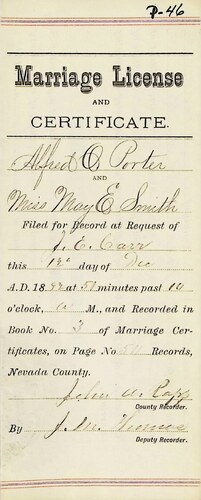 P-46
Marriage License
AND
CERTIFICATE.
Alfred O. Porter
AND
Miss May E. Smith
Filed for Record at Request of
J. C. Carr
this 12th day of Dec
A.D. 18 at 51 minutes past 10
o'clock, a M., and Recorded in
Book No. 3 of Marriage Cer-
tificates, on Page No. Records,
Nevada County.
John
County Recorder.
By J. M. Thomas
Deputy Recorder.